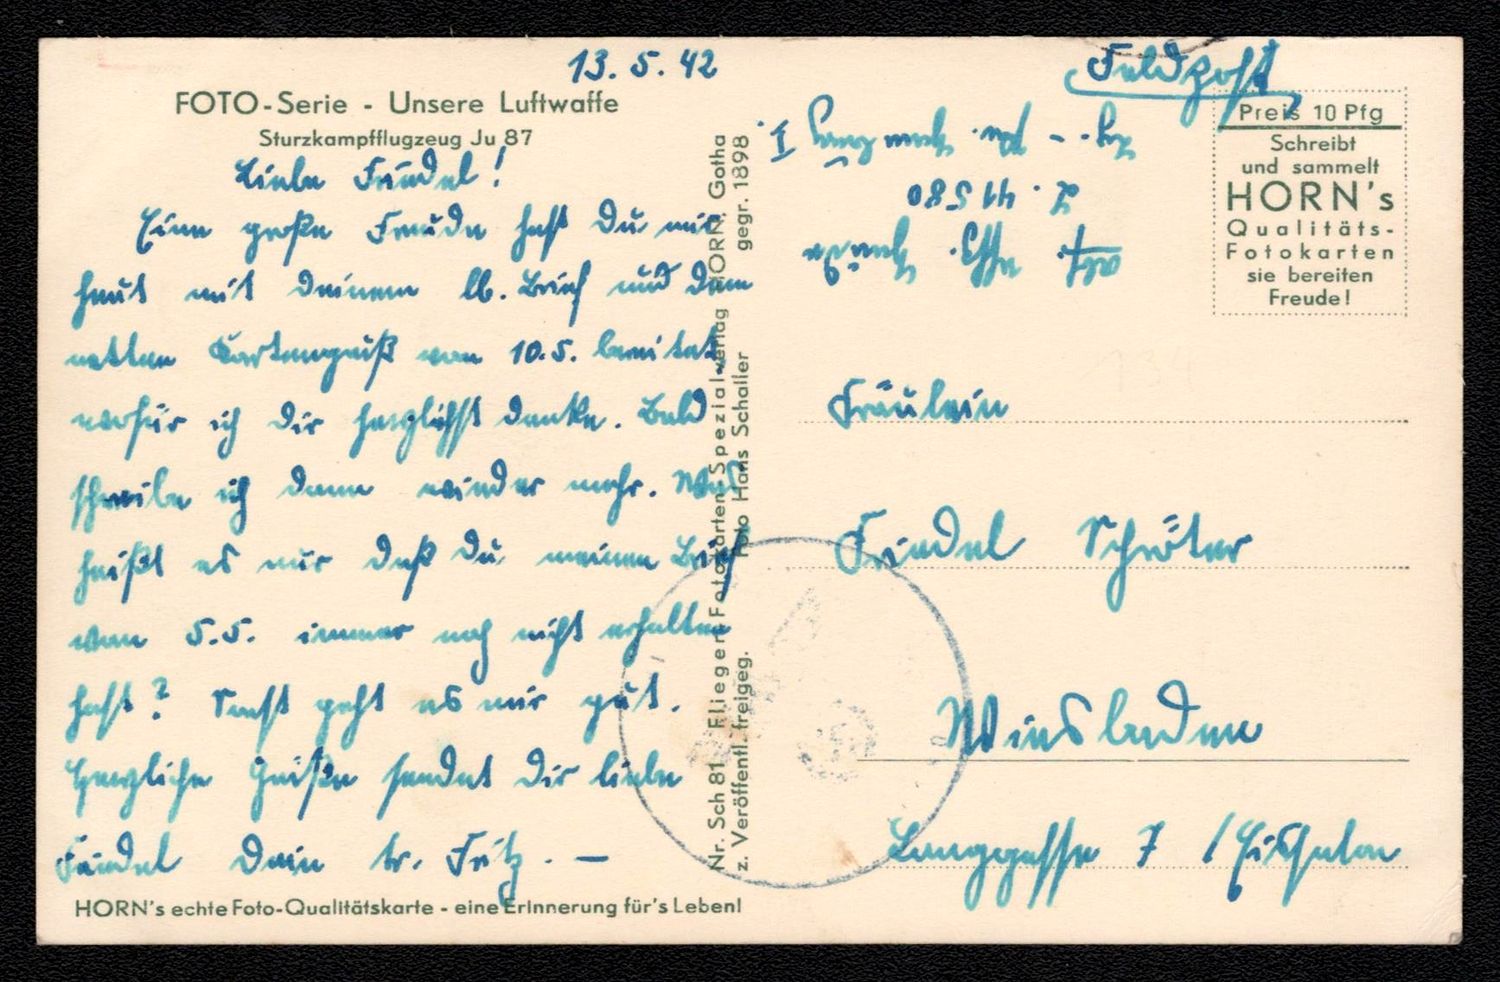 13.5.42
FOTO-Serie - Unsere Luftwaffe
Sturzkampfflugzeug Ju 87
Liebe Friedel!
Eine große Freude hast Du mir
heut mit deinem lb. Brief und dem
netten Kartengruß vom 10.5. bereitet,
wofür ich dir herzlichst danke. Bald
schreibe ich dann wieder mehr. Was
heißt es nur daß du meinen Brief
vom 5.5. immer noch nicht erhalten
hast? Sonst geht es mir gut.
Herzliche Grüße sendet dir liebe
Friedel Dein tr. Fritz. —
HORN's echte Foto-Qualitätskarte - eine Erinnerung für's Leben!
Nr. Sch 81 Flieger-Fotokarten-Spezialverlag HORN, Gotha
z. Veröffentl. freigeg. Foto Hans Schaller gegr. 1898
Feldpost
L. 44580
Preis 10 Pfg
Schreibt
und sammelt
HORN's
Qualitäts-
Fotokarten
sie bereiten
Freude!
Fräulein
Friedel Schröter
Wiesbaden
Langgasse 7 / Eissalon